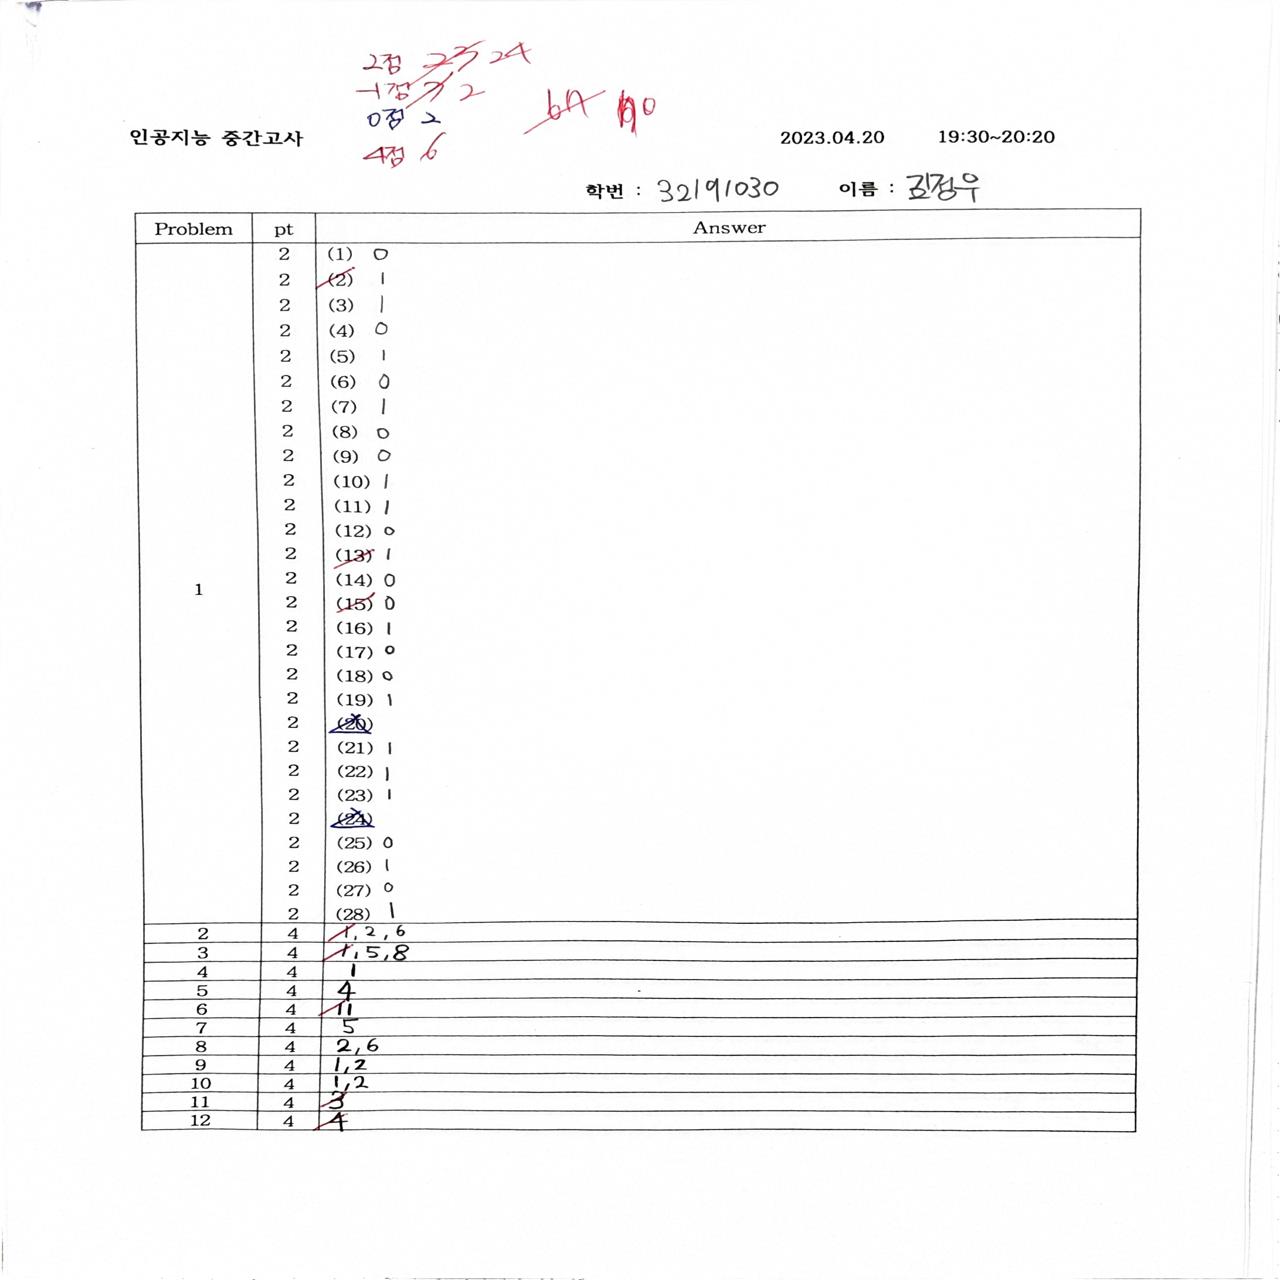 2점 23 24
-1점 3 2
0점 2
4점 6
인공지능 중간고사 2023.04.20 19:30~20:20
학번 : 32191030 이름 : 김정우
Problem pt Answer
1
2 (1) 0
2 (2) 1
2 (3) 1
2 (4) 0
2 (5) 1
2 (6) 0
2 (7) 1
2 (8) 0
2 (9) 0
2 (10) 1
2 (11) 1
2 (12) 0
2 (13) 1
2 (14) 0
2 (15) 0
2 (16) 1
2 (17) 0
2 (18) 0
2 (19) 1
2 (20)
2 (21) 1
2 (22) 1
2 (23) 1
2 (24)
2 (25) 0
2 (26) 1
2 (27) 0
2 (28) 1
2 4 1, 2, 6
3 4 1, 5, 8
4 4 1
5 4 4
6 4 11
7 4 5
8 4 2, 6
9 4 1, 2
10 4 1, 2
11 4 3
12 4 4